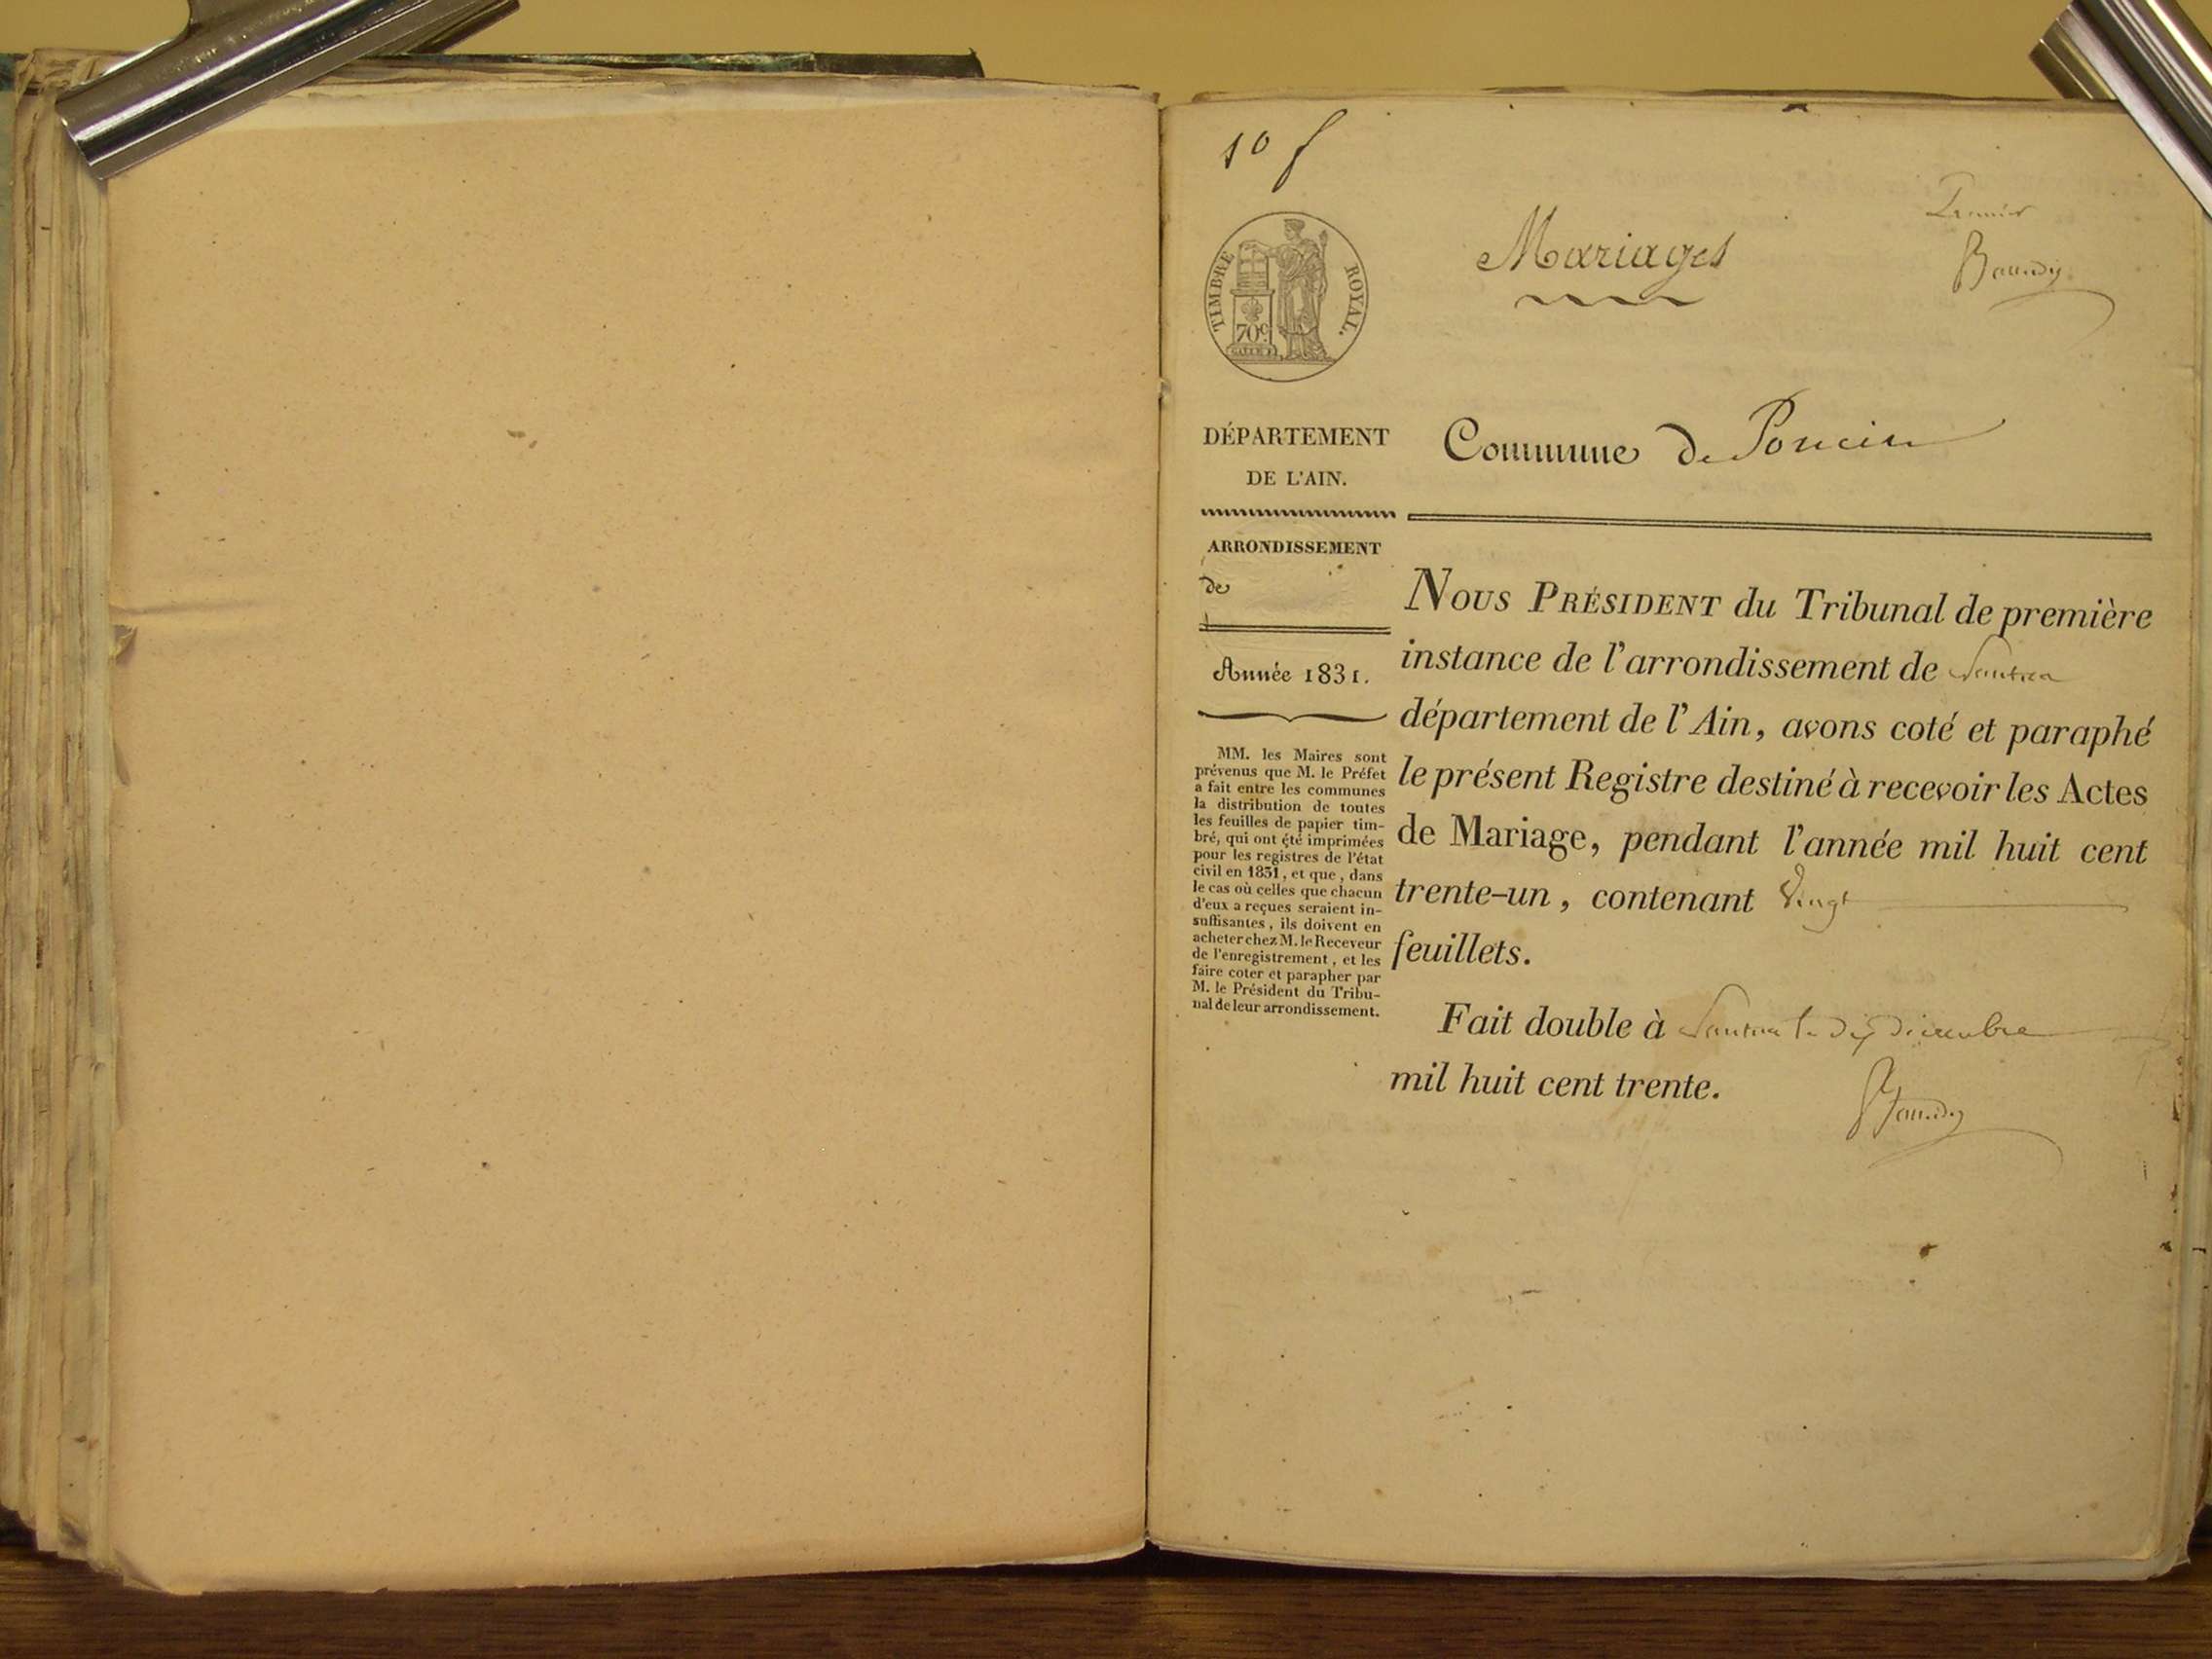 10 f
Premier
Mariages
Baudy
TIMBRE ROYAL.
70c
DÉPARTEMENT
DE L'AIN.
Commune de Poncin
ARRONDISSEMENT
de
Année 1831.
MM. les Maires sont
prévenus que M. le Préfet
a fait entre les communes
la distribution de toutes
les feuilles de papier tim-
bré, qui ont été imprimées
pour les registres de l'état
civil en 1831, et que, dans
le cas où celles que chacun
d'eux a reçues seraient in-
suffisantes, ils doivent en
acheter chez M. le Receveur
de l'enregistrement, et les
faire coter et parapher par
M. le Président du Tribu-
nal de leur arrondissement.
NOUS PRÉSIDENT du Tribunal de première
instance de l'arrondissement de Nantua
département de l'Ain, avons coté et paraphé
le présent Registre destiné à recevoir les Actes
de Mariage, pendant l'année mil huit cent
trente-un, contenant Vingt
feuillets.
Fait double à Nantua le dix décembre
mil huit cent trente.